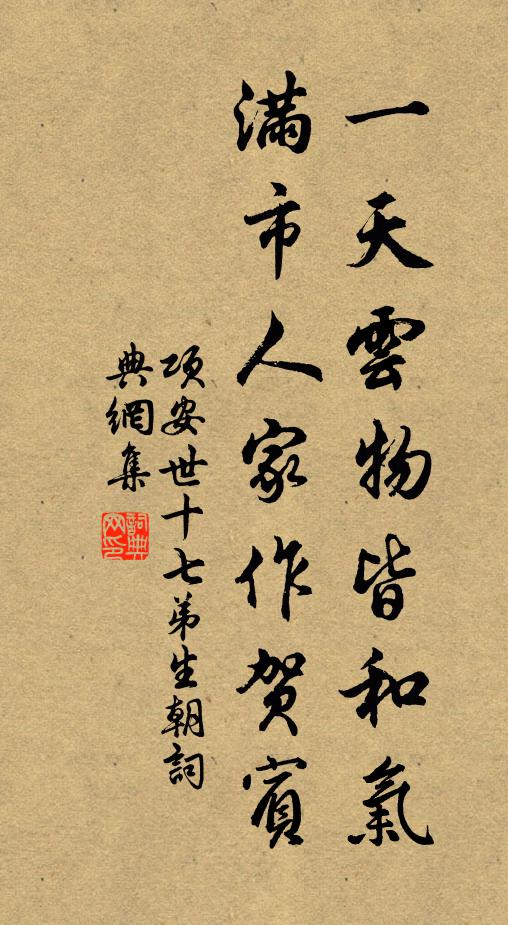 一天雲物皆和氣
滿市人家作賀賓
項安世十七弟生朝詞
典網集
詞典
网印